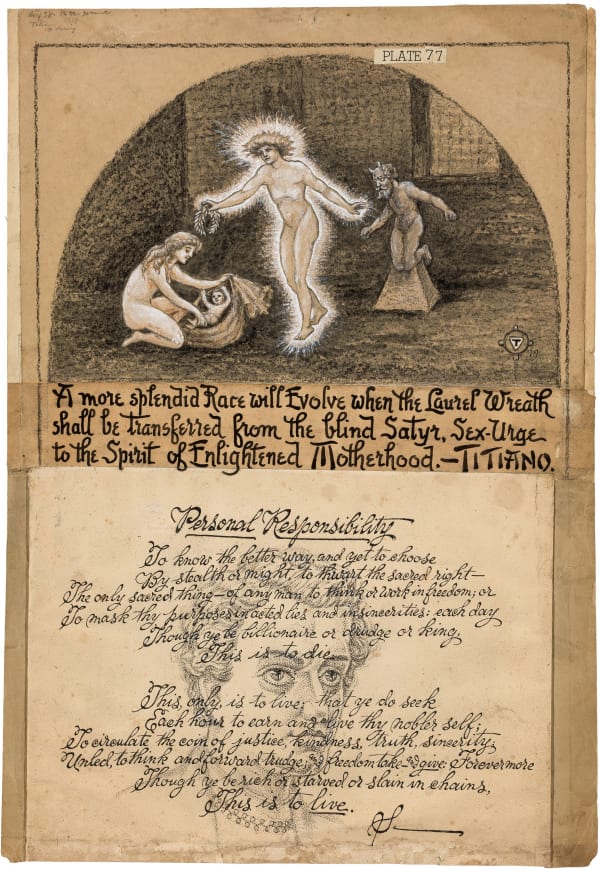 PLATE 77
T
19
A more splendid Race will Evolve when the Laurel Wreath
shall be transferred from the blind Satyr, Sex-Urge
to the Spirit of Enlightened Motherhood.—TITIANO.
Personal Responsibility
To know the better way, and yet to choose
By stealth or might, to thwart the sacred right—
The only sacred thing—of any man to think or work in freedom; or
To mask thy purposes in acted lies and insincerities: each day
Though ye be billionaire or drudge or king,
This is to die.
This, only, is to live: that ye do seek
Each hour to earn and live thy nobler self;
To circulate the coin of justice, kindness, truth, sincerity,
Unled, to think and forward trudge; and freedom take and give: Forevermore
Though ye be rich or starved or slain in chains,
This is to live.